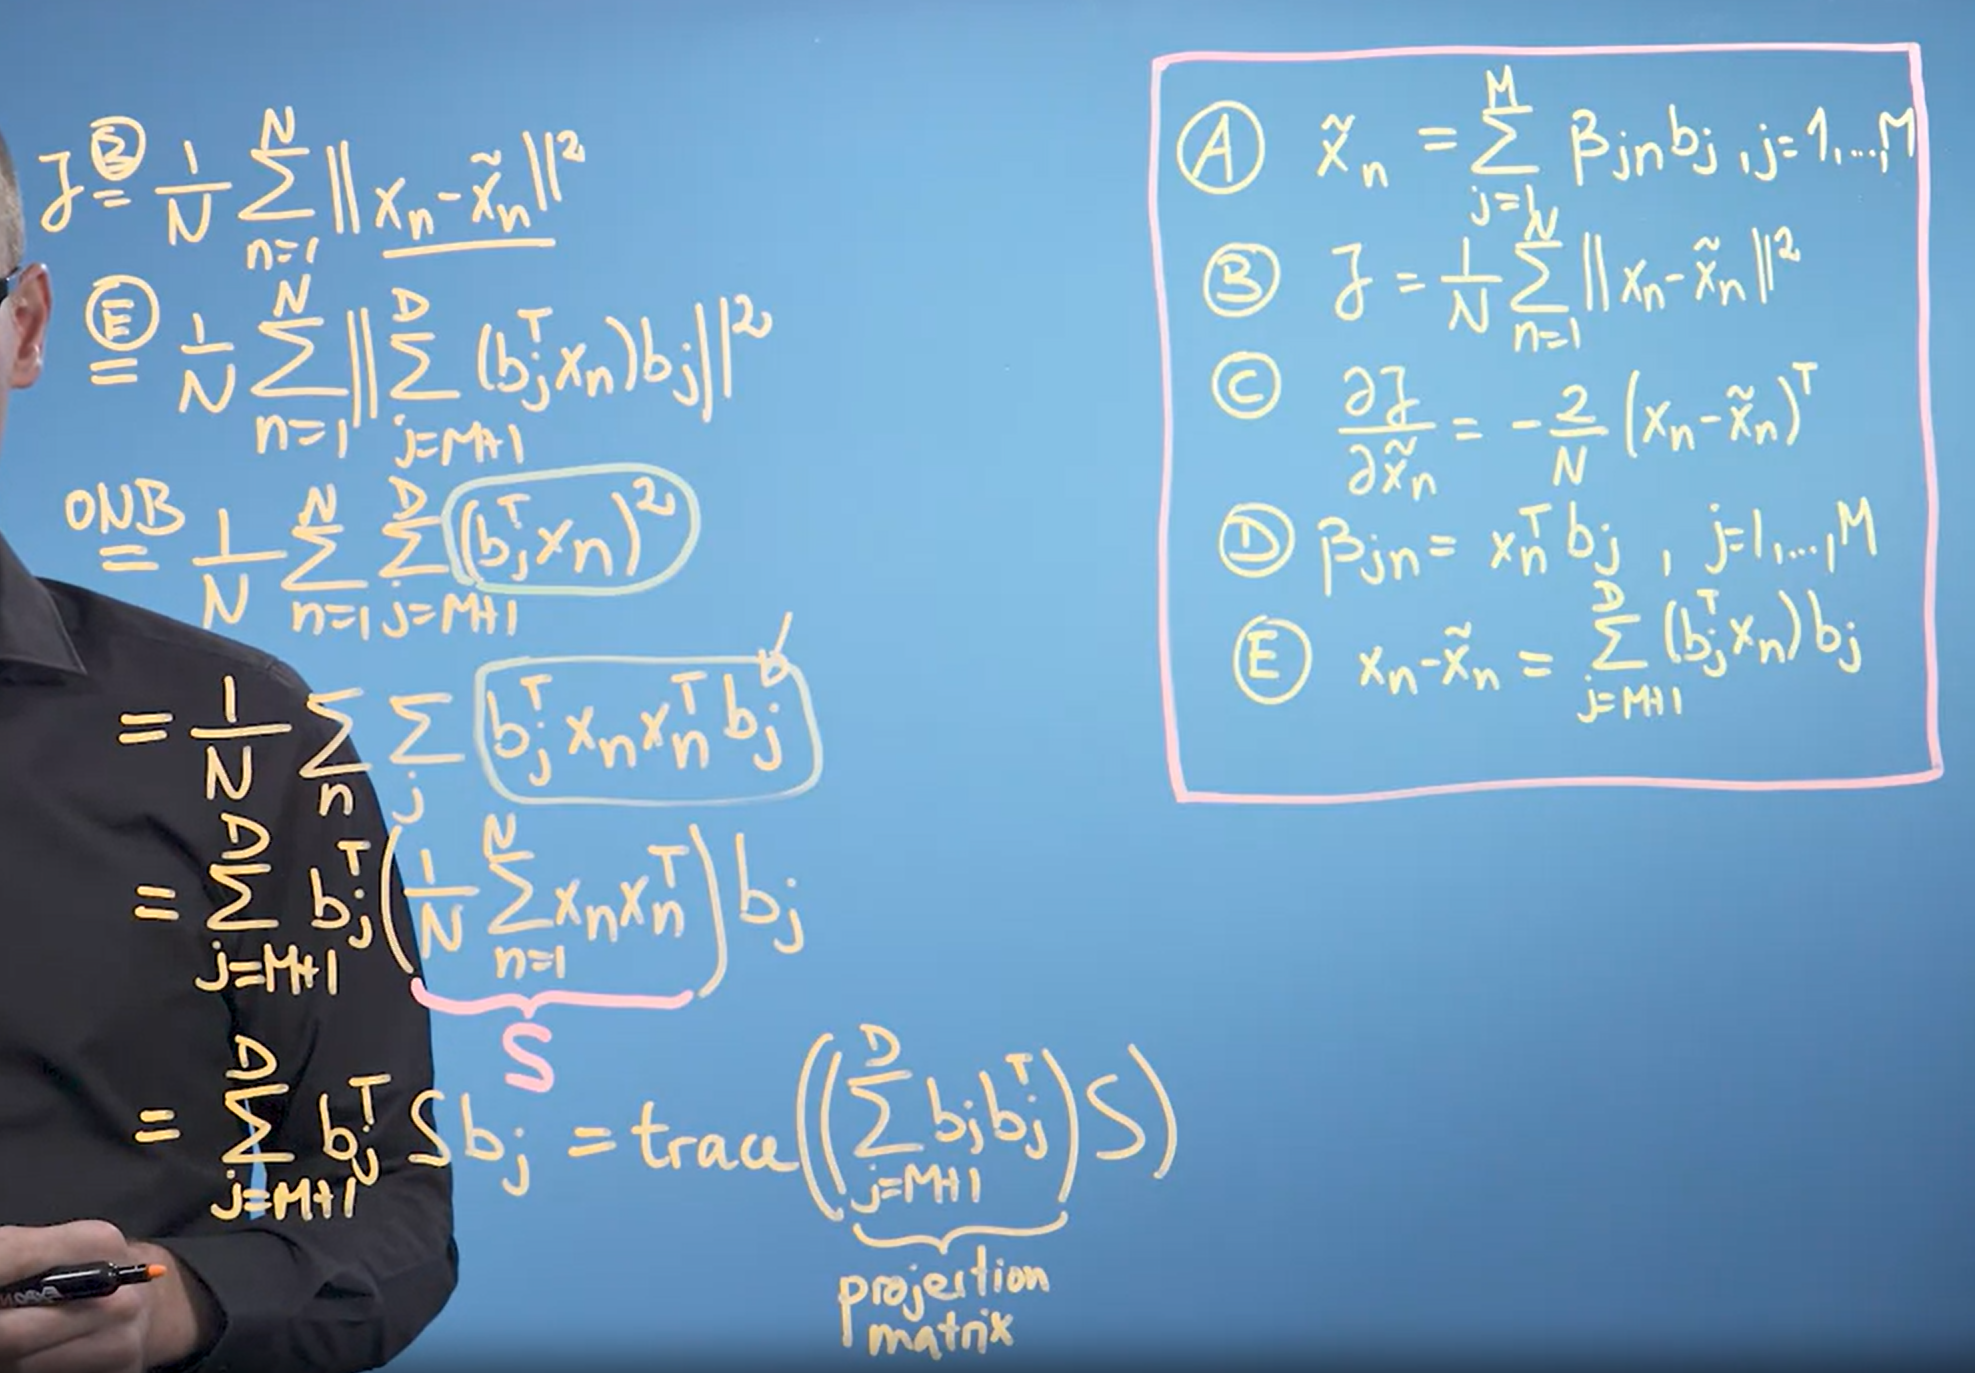 J =^Ⓑ 1/N Σ_{n=1}^{N} ‖x_n - x̃_n‖²
=^Ⓔ 1/N Σ_{n=1}^{N} ‖Σ_{j=M+1}^{D} (b_j^T x_n) b_j‖²
=^{ONB} 1/N Σ_{n=1}^{N} Σ_{j=M+1}^{D} (b_j^T x_n)²
= 1/N Σ_n Σ_j b_j^T x_n x_n^T b_j
= Σ_{j=M+1}^{D} b_j^T (1/N Σ_{n=1}^{N} x_n x_n^T) b_j
S
= Σ_{j=M+1}^{D} b_j^T S b_j = trace((Σ_{j=M+1}^{D} b_j b_j^T) S)
projection
matrix
Ⓐ x̃_n = Σ_{j=1}^{M} β_{jn} b_j , j=1,...,M
Ⓑ J = 1/N Σ_{n=1}^{N} ‖x_n - x̃_n‖²
Ⓒ ∂J/∂x̃_n = - 2/N (x_n - x̃_n)^T
Ⓓ β_{jn} = x_n^T b_j , j=1,...,M
Ⓔ x_n - x̃_n = Σ_{j=M+1}^{D} (b_j^T x_n) b_j